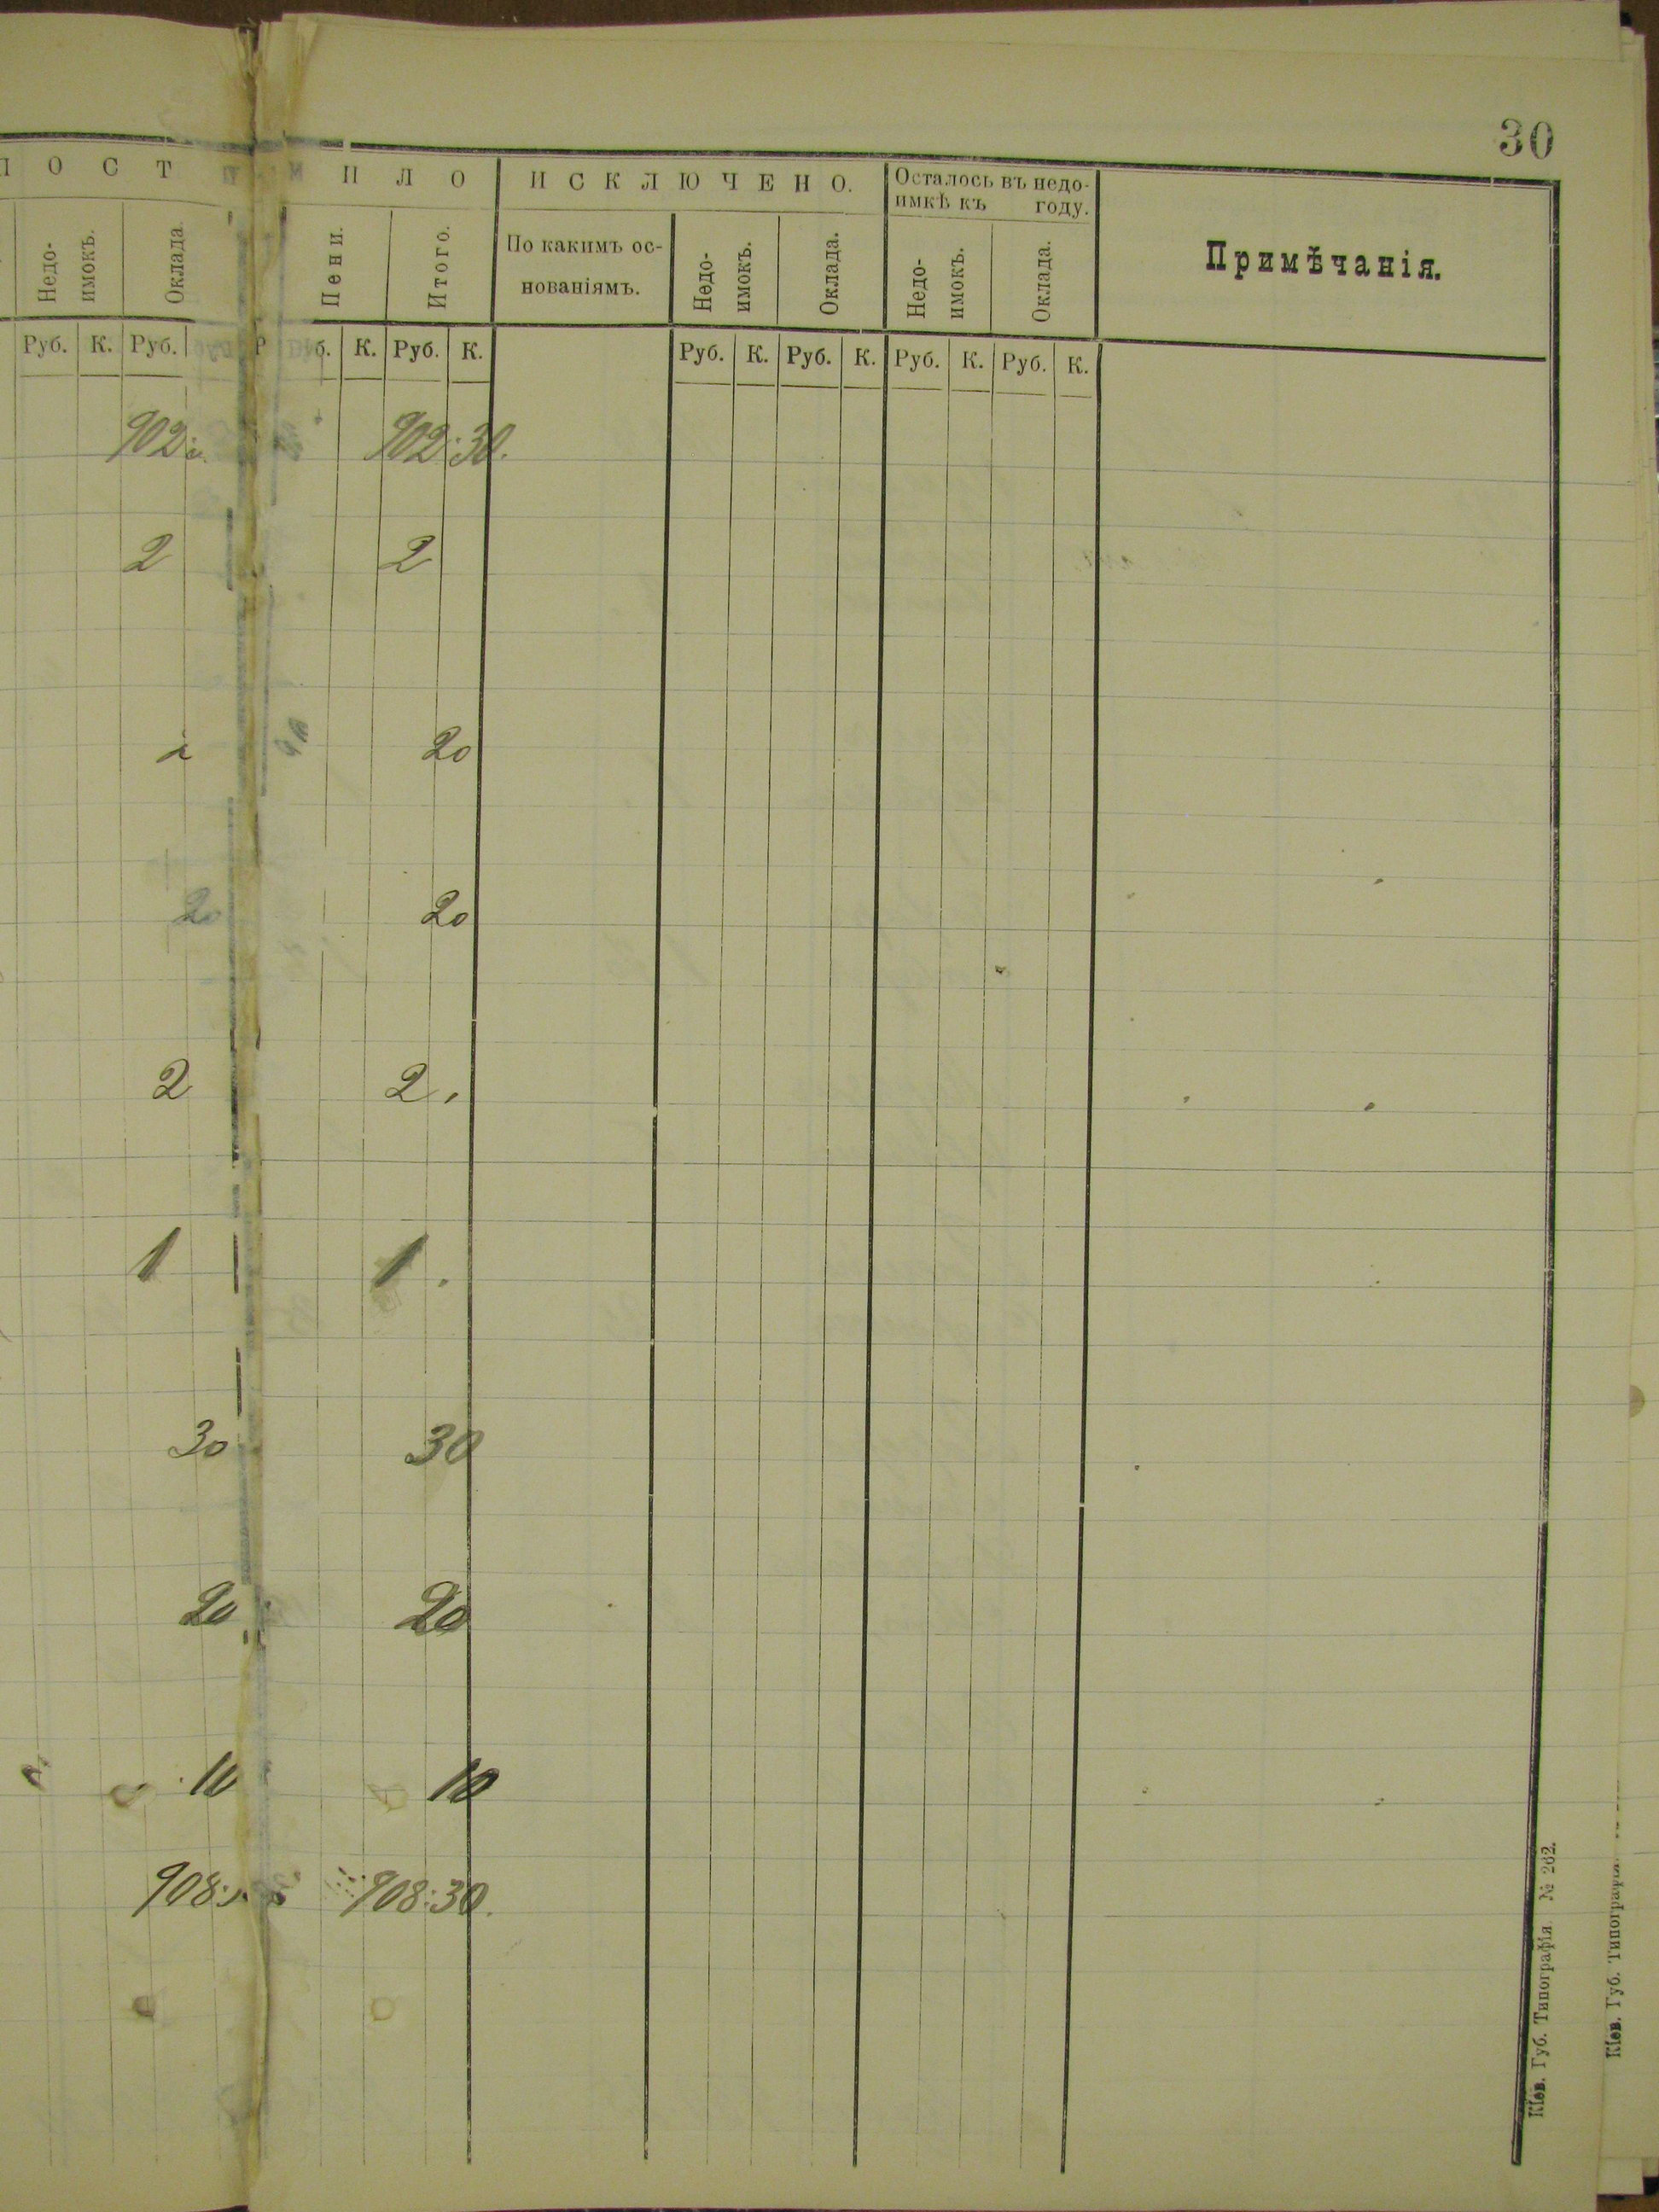 30
П О С Т И Л О
И С К Л Ю Ч Е Н О.
Осталось въ недо-
имкѣ къ году.
Примѣчанія.
Недо-
имокъ.
Оклада.
Пени.
Итого.
По какимъ ос-
нованіямъ.
Недо-
имокъ.
Оклада.
Недо-
имокъ.
Оклада.
Руб. К. Руб. К. Руб. К. Руб. К. Руб. К. Руб. К. Руб. К.
902: 902:30.
2 2
20
20 20
2 2.
1 1.
30 30
20 20
10 10
908: 908:30.
Кіев. Губ. Типографія. № 262.
Кіев. Губ. Типографія.